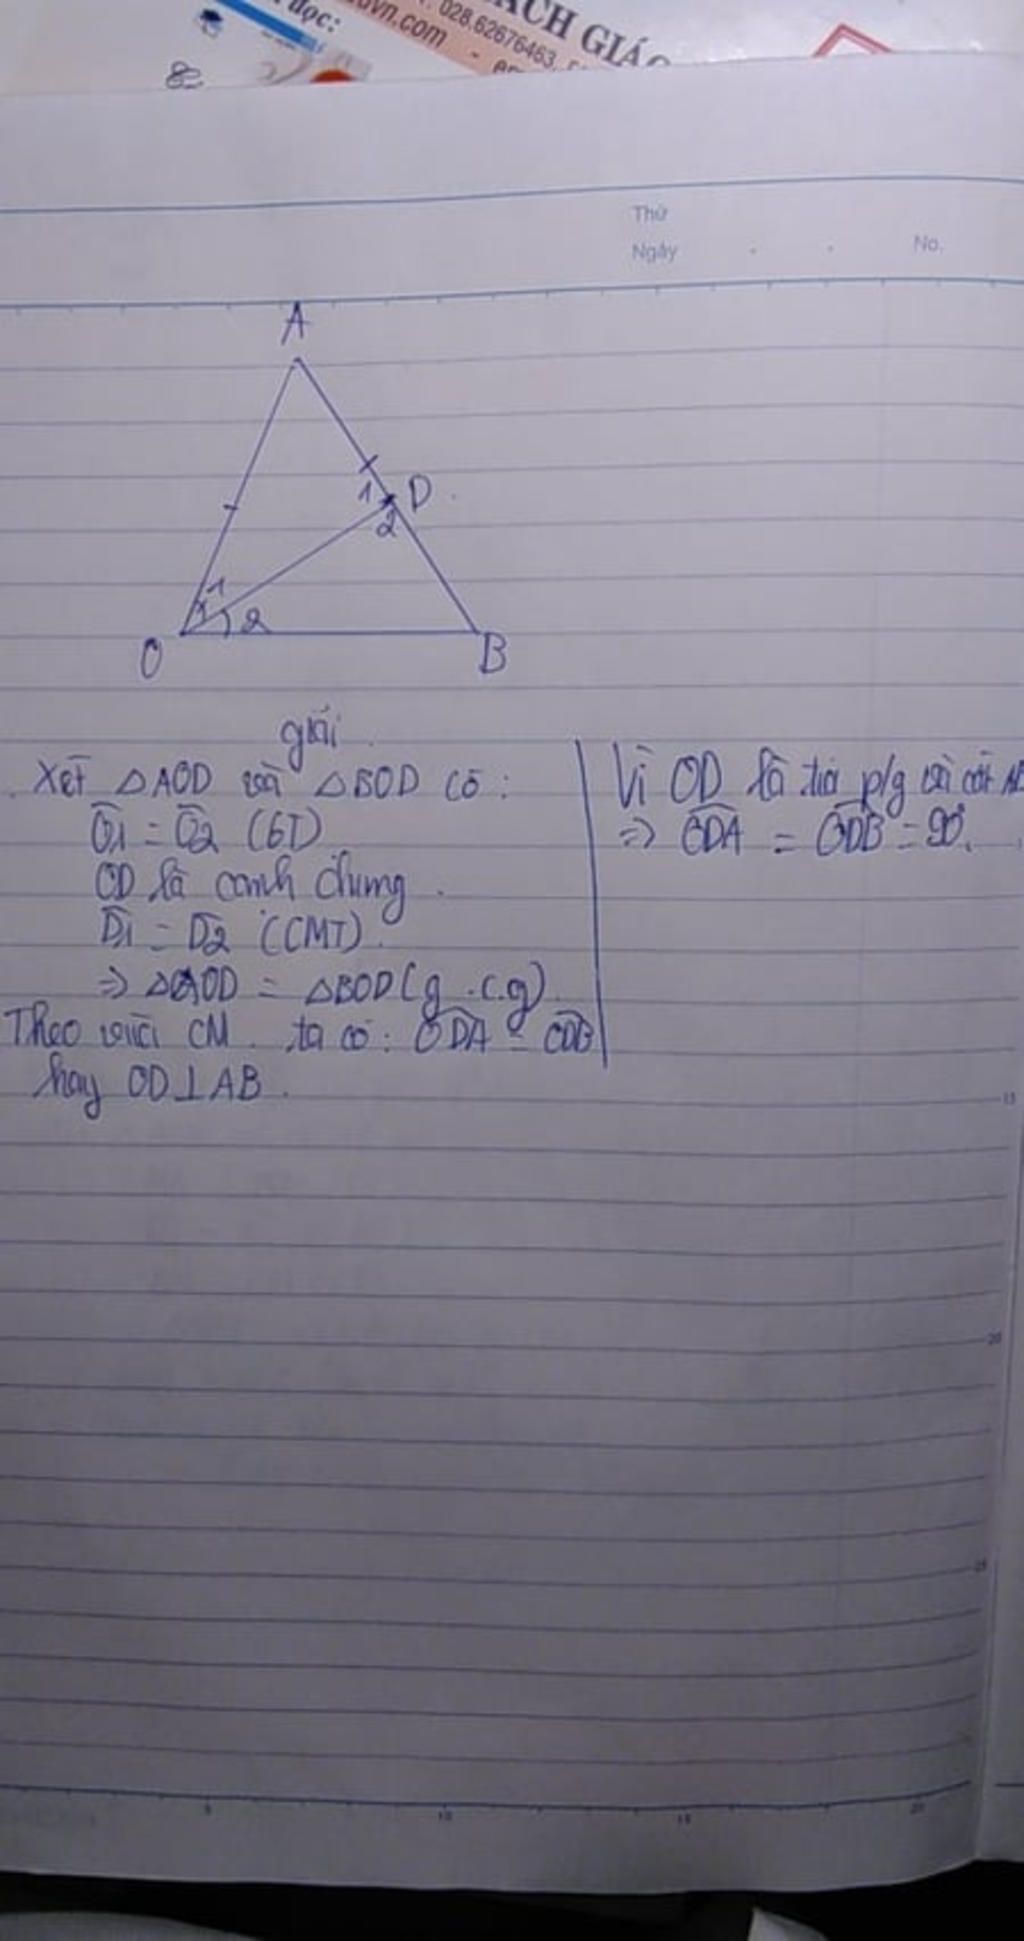 dọc:
vn.com -
028.62676463
ÁCH GIÁO
Thứ
Ngày . . No.
A
1 D
2
1
2
O B
giải
Xét △AOD và △BOD có:
O1 = O2 (GT)
OD là cạnh chung.
D1 = D2 (CMT).
=> △AOD = △BOD (g.c.g)
Theo CM ta có: ODA = ODB
hay OD⊥AB.
Vì OD là tia p/g và cắt
=> ODA = ODB = 90°.
15
20
25
5 10 15 20